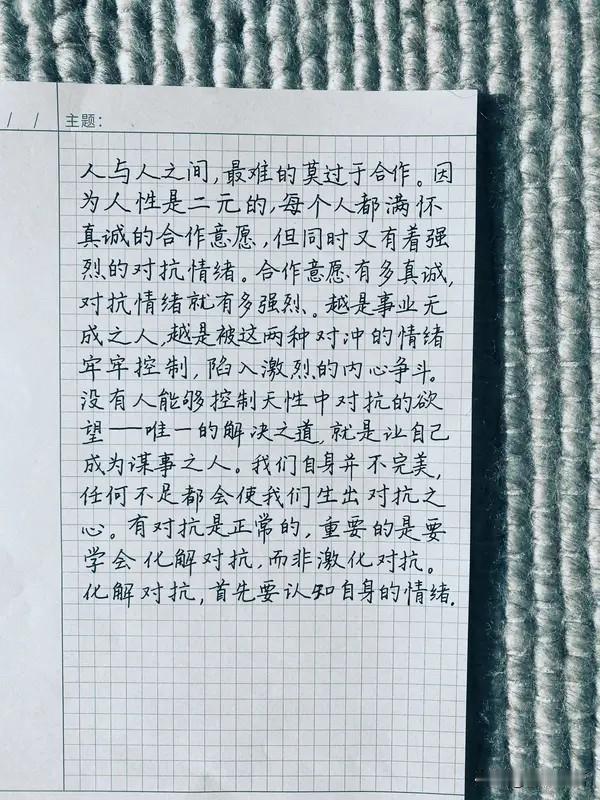 / /
主题：
人与人之间，最难的莫过于合作。因
为人性是二元的，每个人都满怀
真诚的合作意愿，但同时又有着强
烈的对抗情绪。合作意愿有多真诚，
对抗情绪就有多强烈。越是事业无
成之人，越是被这两种对冲的情绪
牢牢控制，陷入激烈的内心争斗。
没有人能够控制天性中对抗的欲
望——唯一的解决之道，就是让自己
成为谋事之人。我们自身并不完美，
任何不足都会使我们生出对抗之
心。有对抗是正常的，重要的是要
学会化解对抗，而非激化对抗。
化解对抗，首先要认知自身的情绪.